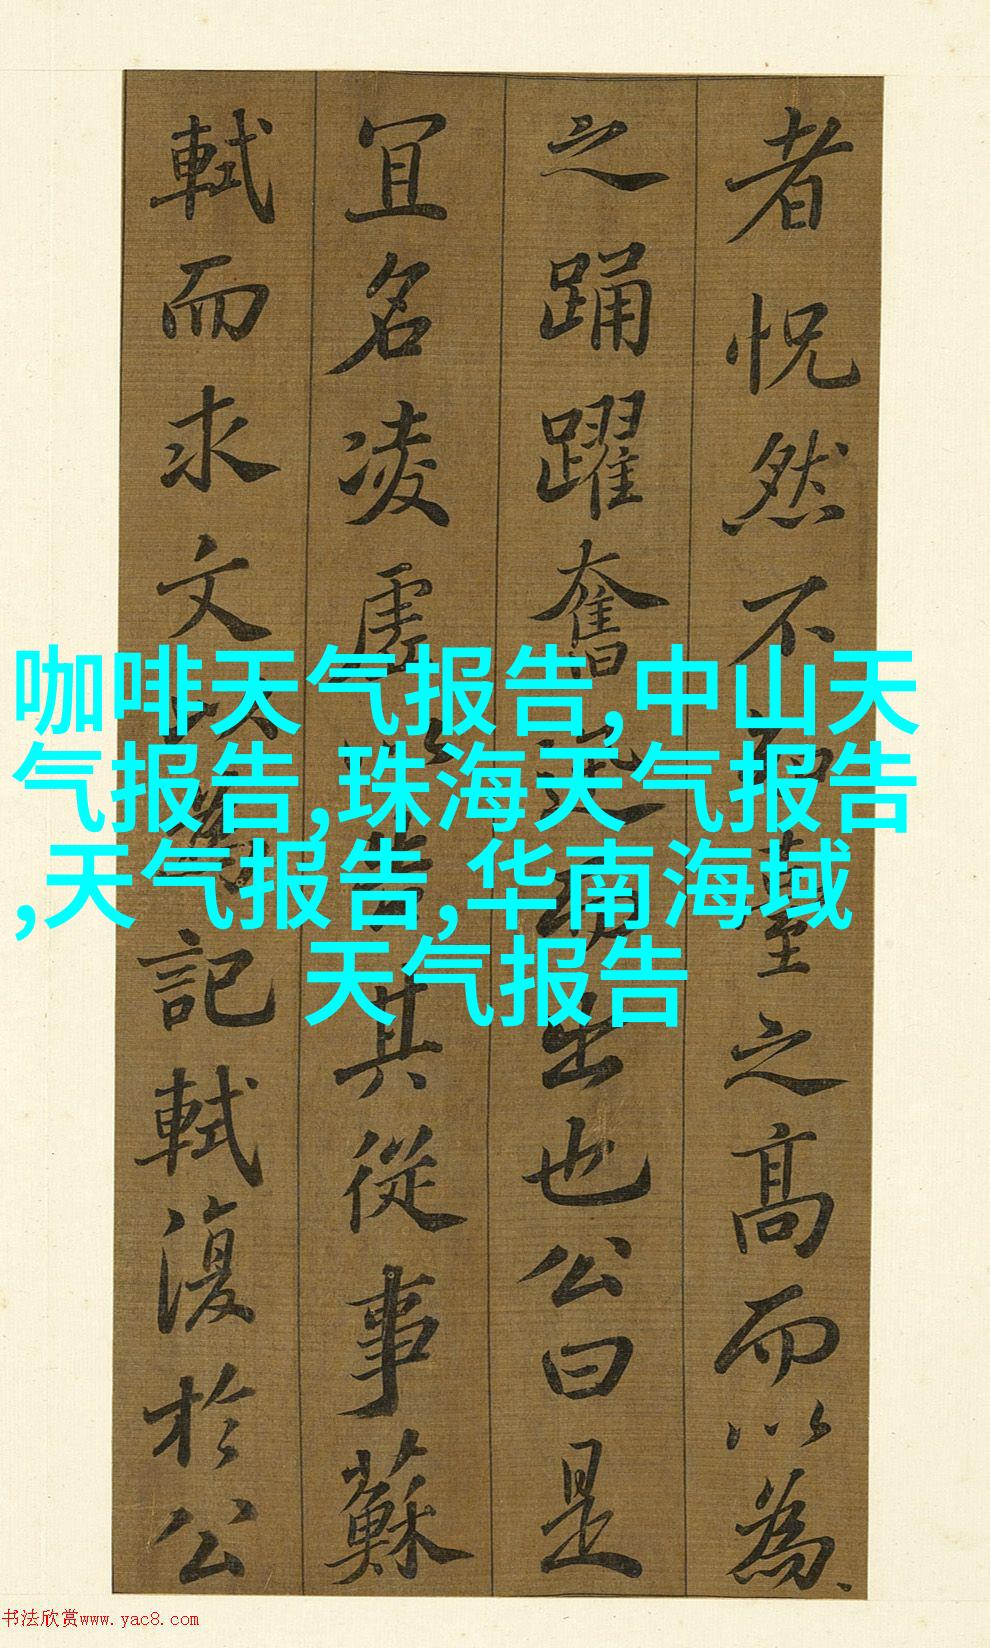 者怳然不知臺之高而以為
之踊躍奮迅而出也公曰是
冝名凌虛以告其從事蘇
軾而求文以為記軾復於公
咖啡天气报告,中山天
气报告,珠海天气报告
,天气报告,华南海域
天气报告
书法欣赏www.yac8.com